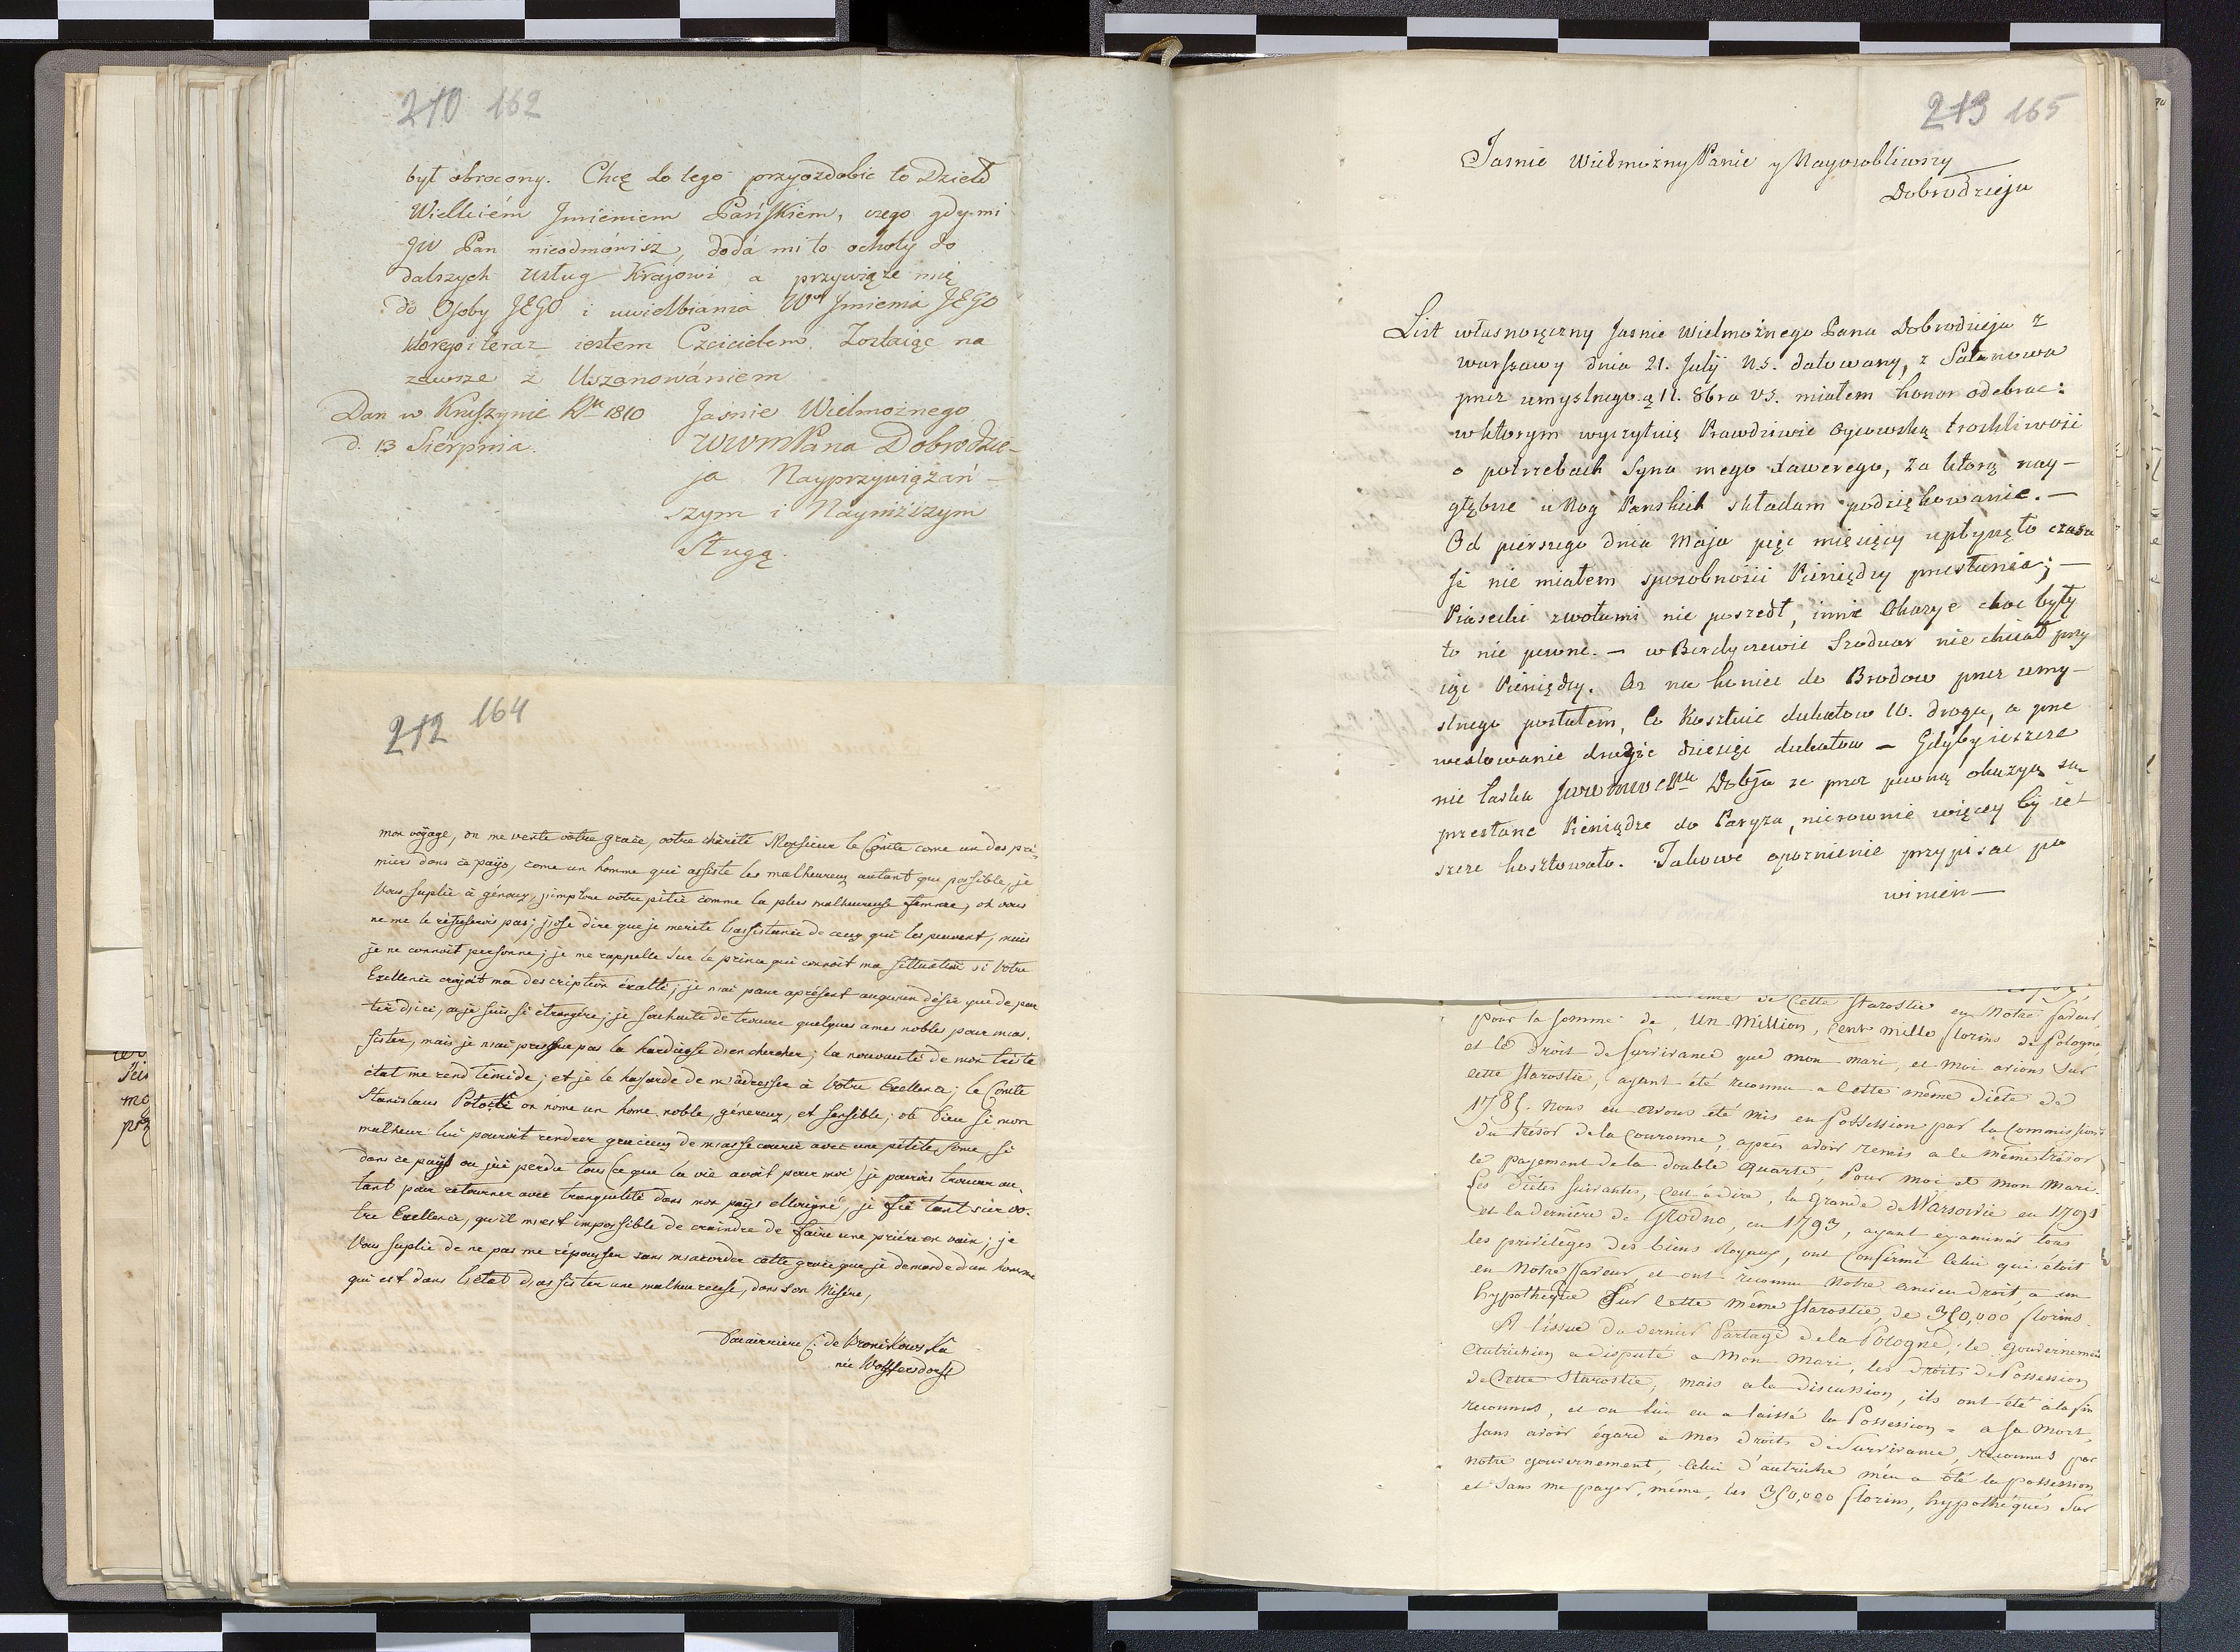 210 162
był obrocony. Chcę do tego przyozdobić to Dzieło
Wielkiém Jmieniem Pańskiém, czego gdy mi
JW Pan nieodmówisz, dodá mi to ochoty do
dalszych usług Krajowi, a przywiąże mię
do Osoby JEGO i uwielbiania Wo Jmienia JEGO
którego i teraz iestem Czcicielem. Zostaiąc na
zawsze z Uszanowániem
Dan w Kruszynie Rku 1810
d. 13 Sierpnia.
Jasnie Wielmożnego
WWMPana Dobrodzie-
ja Nayprzywiązań-
szym i Nayniższym
Sługą.
212 164
mon voÿage, on me vente vôtre grace, votre charité Monsieur le Comte come un des pré-
miers dans ce païs, come un homme qui assiste les malheureux autant que possible, je
Vous suplie à génoux, j'implore votre pitié comme la plus malheureuse femme, oh vous
ne me le réfuserois pas; j'ose dire que je merite l'assistance de ceux qui les peuvent, mais
je ne connoit personne; je me rappelle sur le prince qui connoit ma situation si Votre
Exellence croyoit ma description éxalté; je n'ai pour aprésent auqu'un désir que de par
tir d'ici, ou je suis si etrangère; je souhaite de trouver quelques ames nobles pour m'as-
sister, mais je n'ai presque pas la hardiesse d'en chercher; la nouvauté de mon triste
état me rend timide; et je le hasarde de m'adresser à Votre Exellence; le Comte
Stanislaus Potocki on nome un home noble, génereux, et sensible; oh Dieu si mon
malheur lui pouroit rendrer gracieux de m'assecourir avec une pétite some, si
dans ce païs ou j'ai perdu tous ce que la vie avoit pour moi) je pourois trouver au-
tant pour retourner avec tranquilité dans mon païs elloigné, je fie tant sur vo-
tre Exellence, qu'il m'est impossible de craindre de faire une prière en vain; je
Vous suplie de ne pas me répousser sans m'acorder cette grace que je demande d'un homme
qui est dans l'etat d'assister une malheureuse, dans son Misère,
Douairriere C: de Bronikowska
née Wolffersdorff
213 165
Jasnie Wielmożny Panie y Nayosobliwszy
Dobrodzieju
List własnoręczny Jasnie Wielmożnego Pana Dobrodzieja z
Warszawy dnia 21. Julÿ n.s. datowany, z Satanowa
przez umyslnego a 11. 8bra v.s. miałem honor odebrac:
w którym wyczytuię Prawdziwie Oycowską troskliwość
o potrzebach Syna mego Xawerego, za którą nay-
głębsze u Nog Panskich składam podziękowanie. —
Od pierszego dnia Maja pięc mięsięcy upłynęło czasu
Ja nie miałem sposobności Pieniędzy przesłania; —
Piasecki z wołami nie poszedł, innie Okazye choc były
to nie pewne. — w Berdyczewie Szoduar nie chciał przy
iąc Pieniędzy. Az na koniec do Brodow przez umy-
slnego posłałem, Co Kosztuie dukatow 10. droga, a prze
wexlowanie drugie dziesięc dukatow — Gdyby ieszcze
nie łaska JWWMWCPa Dobja ze przez pewną okazyą są
przesłane Pieniądze do Paryza, nierownie więcey by ie-
szcze kosztowało. Takowe opoznienie przypisac po
winien —
de Cette Starostie en Notre faveur,
pour la somme de, Un Million, Cent mille florins de Pologne,
et le Droit de survivance que mon mari, et moi avions sur
cette starostie, ayant été reconnu a cette même Diète de
1785. nous en avons été mis en possession par la Commission
du trésor de la Couronne, après avoir remis a le même trésor
le payement de la double Quarte, Pour moi et mon Mari.
Les diètes suivantes, C'est-à-dire, la Grande de Warsovie en 1791
et la dernière de Grodno, en 1793, ayant examinés tous
les privilèges des biens Royaux, ont Confirmé Celui qui étoit
en Notre faveur, et ont reconnu Notre ancien droit, a un
hypothèque Sur Cette même Starostie, de 350,000 florins.
A l'issue du dernier Partage de la Pologne, le gouvernement
Autrichien a disputé a Mon Mari, les droits de Possession
de Cette Starostie, mais a la discussion, ils ont été à la fin
reconnus, et on lui en a laissé la Possession - a sa mort,
sans avoir égard a Mes droits de Survivance, reconnus par
notre gouvernement, Celui d'autriche m'en a ôté la possession
et sans me payer, même, les 350,000 florins, hypothéqués sur